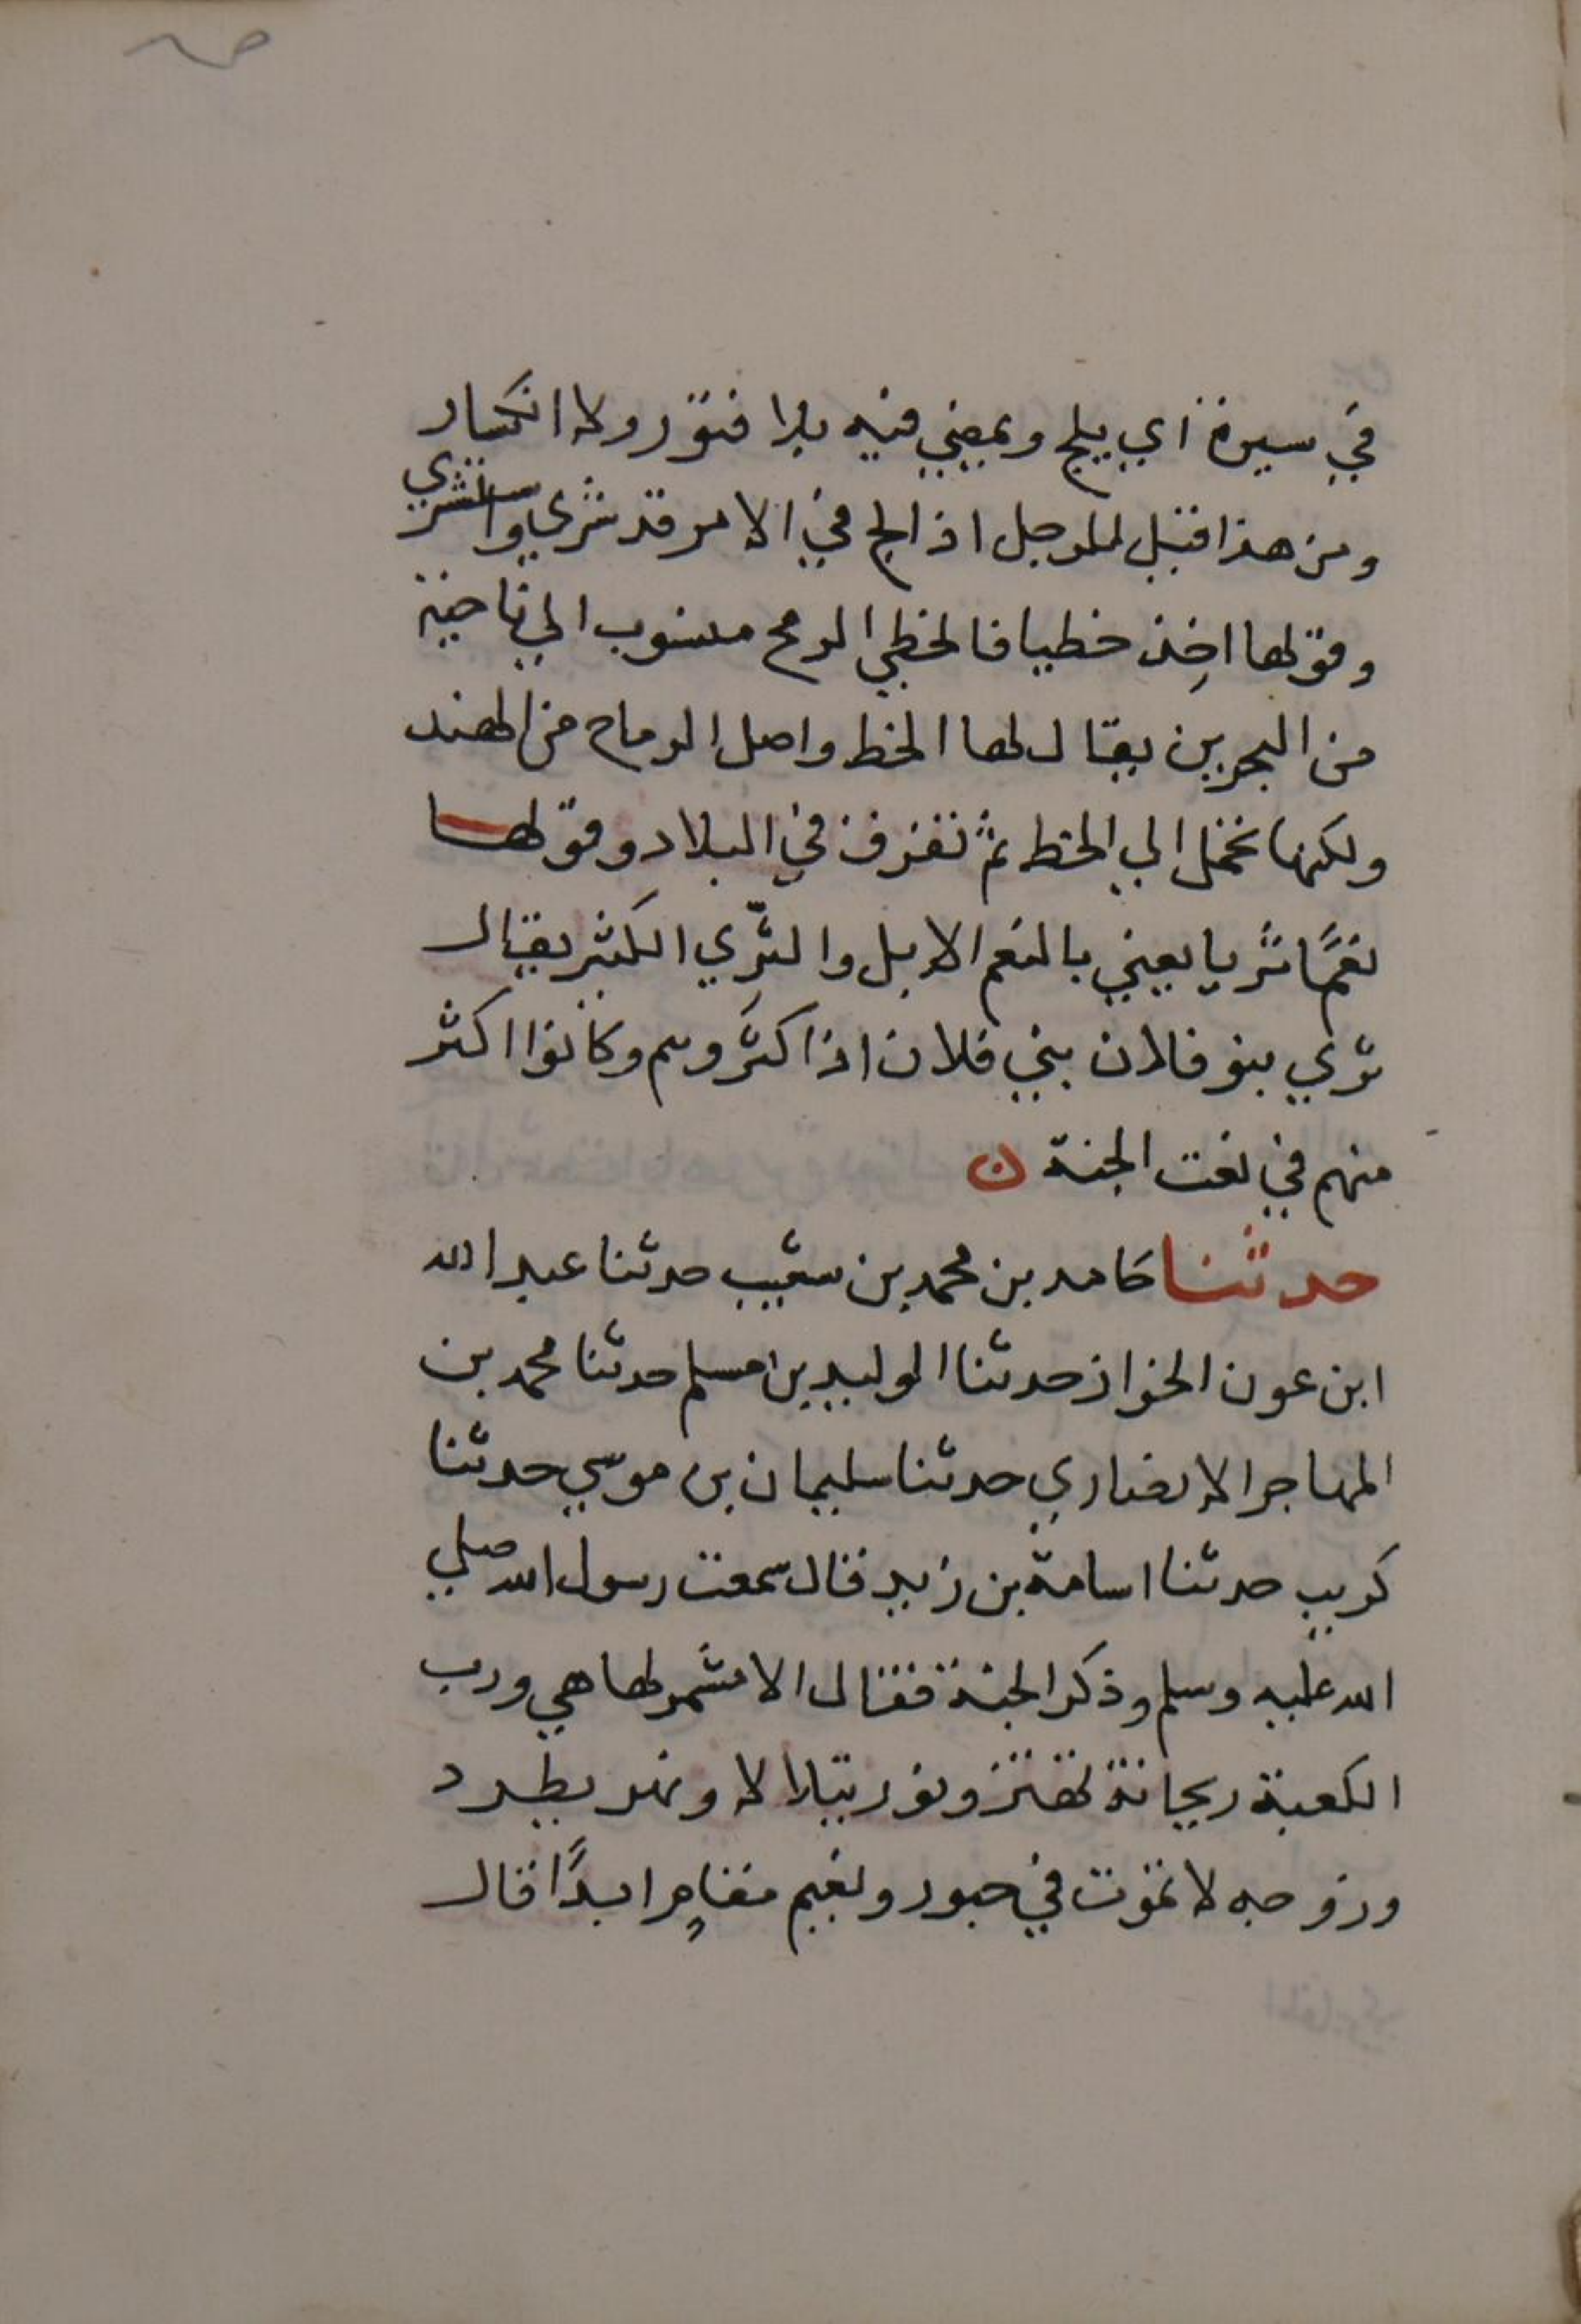 في سيره اي يلج ويمضي فيه بلا فتور ولا انكسار
ومن هذا قيل للرجل اذا لج في الامر قد شري واستشري
وقولها اخِذ خطيا فالخطي الرمح منسوب الي ناحية
من البحرين يقال لها الخط واصل الرماح من الهند
ولكنها تحمل الي الخط ثم تفرق في البلاد وقولها
نعمًا ثريا يعني بالنعم الابل والثَّري الكثير يقال
ثري بنو فلان بني فلان اذا كثَروهم وكانوا اكثر
منهم في نعت الجنة ن
حدثنا حامد بن محمد بن شعيب حدثنا عبد الله
ابن عون الخراز حدثنا الوليد بن مسلم حدثنا محمد بن
المهاجر الانصاري حدثنا سليمان بن موسي حدثنا
كريب حدثنا اسامة بن زيد قال سمعت رسول الله صلي
الله عليه وسلم وذكر الجنة فقال الا مشمر لها هي ورب
الكعبة ريحانة تهتز ونور يتلالا ونهر يطرد
وزوجه لا تموت في حبور ونعيم مقامٍ ابدًا قال